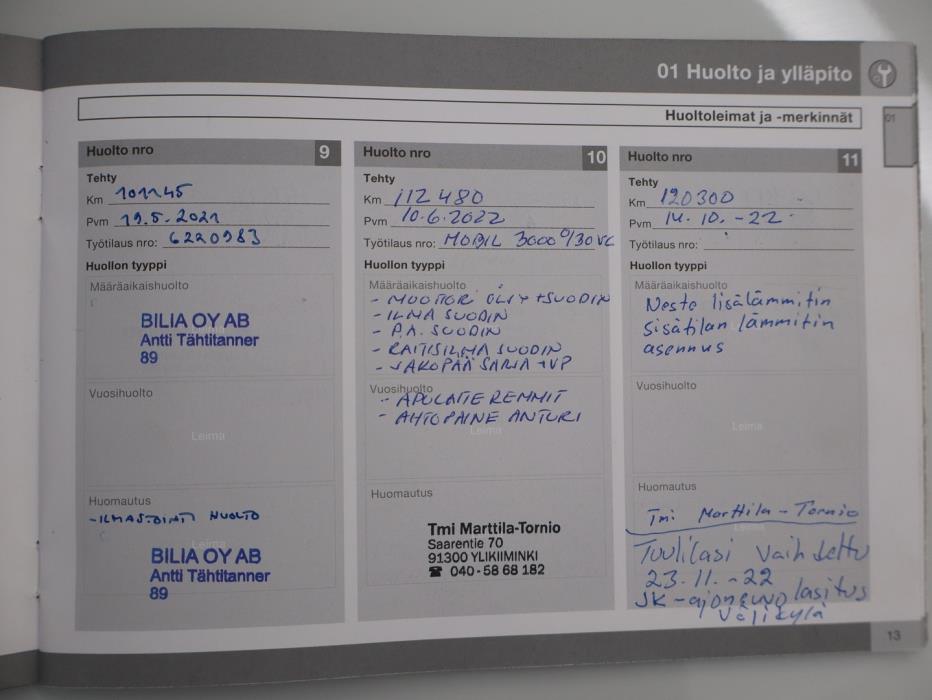 01 Huolto ja ylläpito
Huoltoleimat ja -merkinnät
01
Huolto nro 9
Tehty
Km 101145
Pvm 19.5.2021
Työtilaus nro: 6220983
Huollon tyyppi
Määräaikaishuolto
BILIA OY AB
Antti Tähtitanner
89
Vuosihuolto
Leima
Huomautus
-ILMASTOINTI HUOLTO
Leima
BILIA OY AB
Antti Tähtitanner
89
Huolto nro 10
Tehty
Km 112480
Pvm 10.6.2022
Työtilaus nro: MOBIL 3000 0/30 VC
Huollon tyyppi
Määräaikaishuolto
- MOOTTORI ÖLJY + SUODIN
- ILMA SUODIN
- P.A. SUODIN
- RAITISILMA SUODIN
- JAKOPÄÄ SARJA + VP
Vuosihuolto
- APULAITE REMMIT
- AHTOPAINE ANTURI
Leima
Huomautus
Tmi Marttila-Tornio
Saarentie 70
91300 YLIKIIMINKI
☎ 040-58 68 182
Huolto nro 11
Tehty
Km 120300
Pvm 14.10.-22
Työtilaus nro:
Huollon tyyppi
Määräaikaishuolto
Neste lisälämmitin
sisätilan lämmitin
asennus
Vuosihuolto
Leima
Huomautus
Tmi Marttila-Tornio
Tuulilasi vaihdettu
23.11.-22
JK-ajoneuvolasitus
Välikylä
13